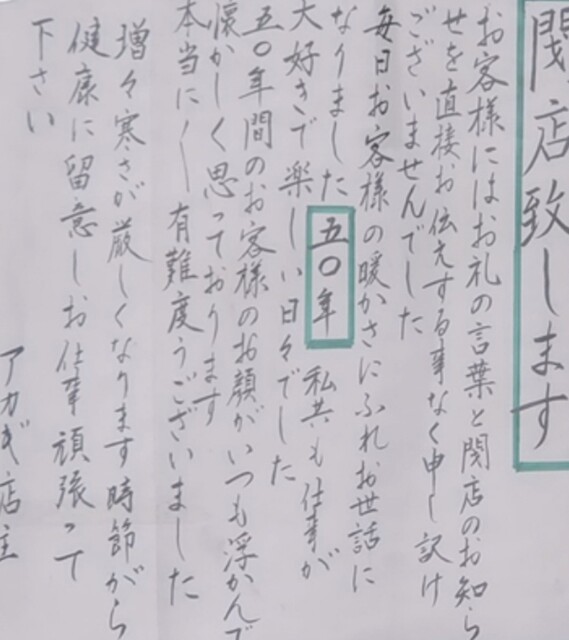 閉店致します
お客様にはお礼の言葉と閉店のお知ら
せを直接お伝えする事なく申し訳け
ございませんでした
毎日お客様の暖かさにふれお世話に
なりました 五〇年 私共も仕事が
大好きで楽しい日々でした
五〇年間のお客様のお顔がいつも浮かんで
懐かしく思っております
本当に〳〵有難度うございました
増々寒さが厳しくなります時節がら
健康に留意しお仕事頑張って
下さい
アカギ店主